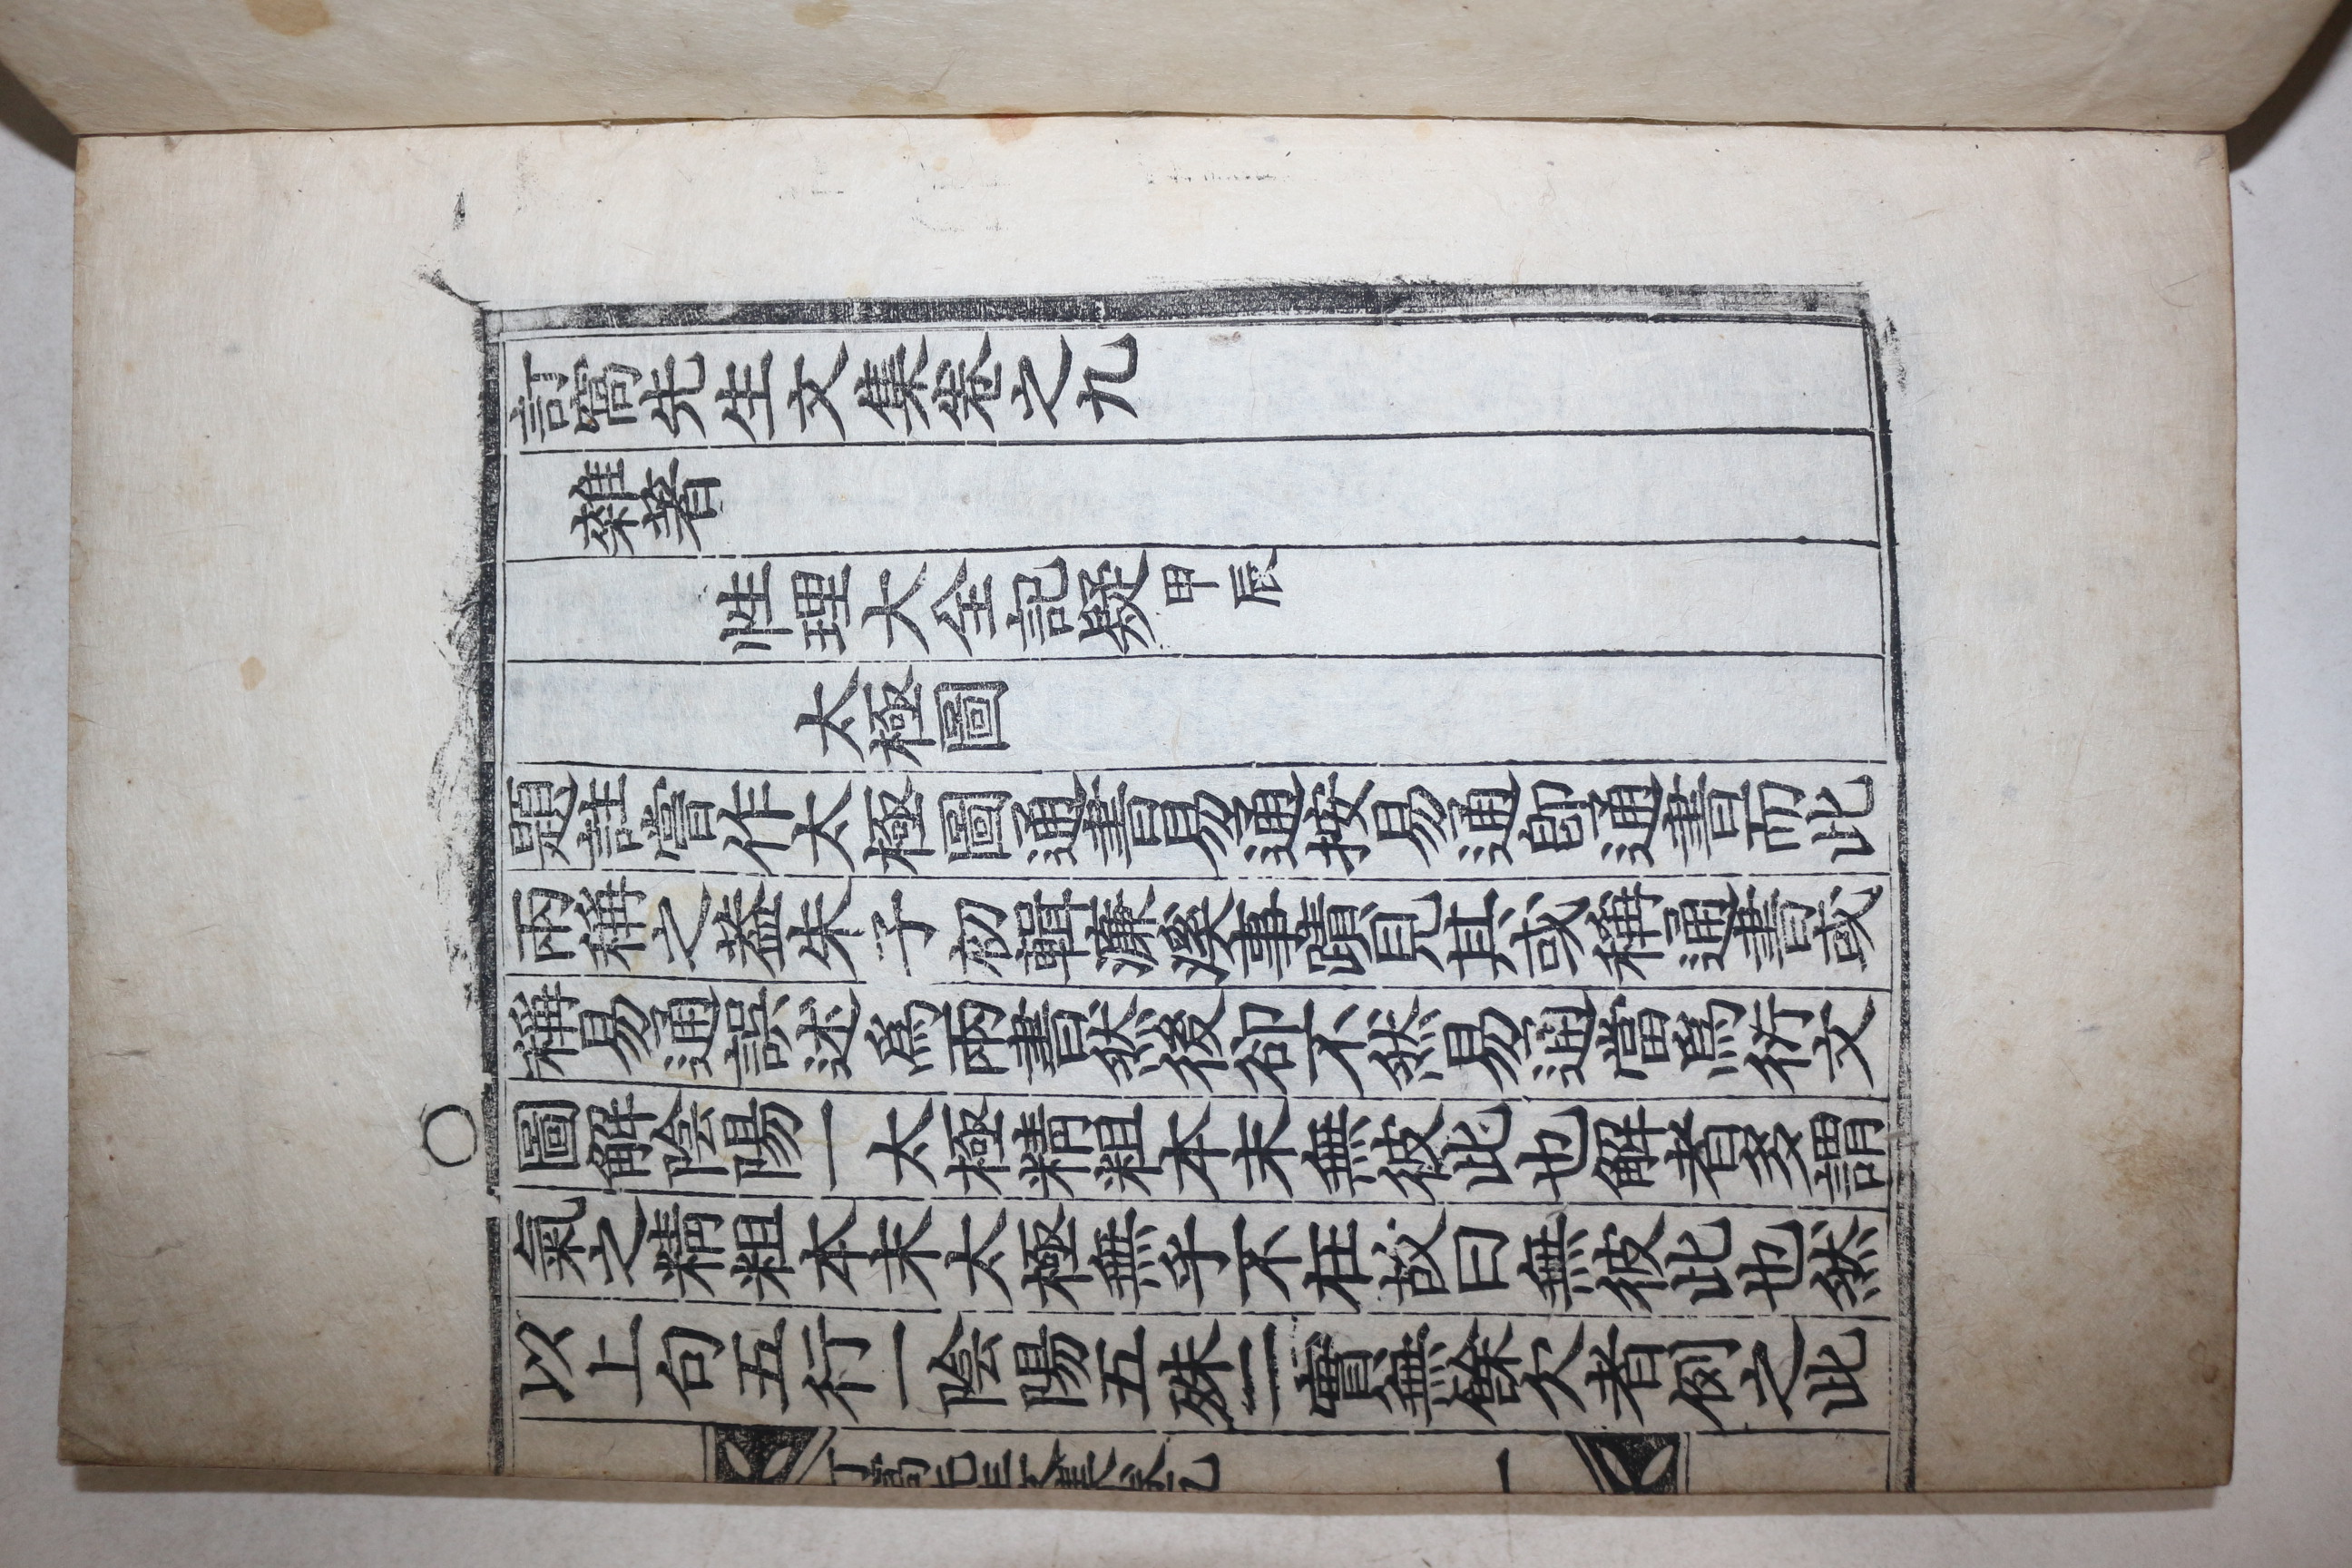 訒窩先生文集卷之九
雜著
性理大全記疑甲辰
太極圖
題註嘗作太極圖通書易通按易通卽通書而此
兩稱之盖朱子初輯濂溪事蹟見其或稱通書或
稱易通誤述爲兩書然後卻不然易通當爲衍文
圖解陰陽一太極精粗本末無彼此也解者多謂
氣之精粗本末太極無乎不在故曰無彼此也然
以上句五行一陰陽五殊二實無餘欠者例之此
訒窩先生文集卷九 一